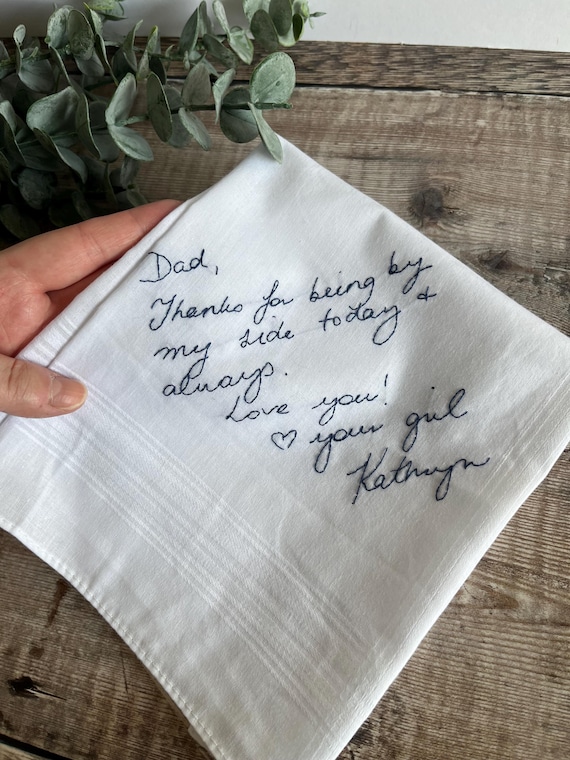 Dad,
Thanks for being by
my side today &
always.
Love you!
♡ your girl
Kathryn